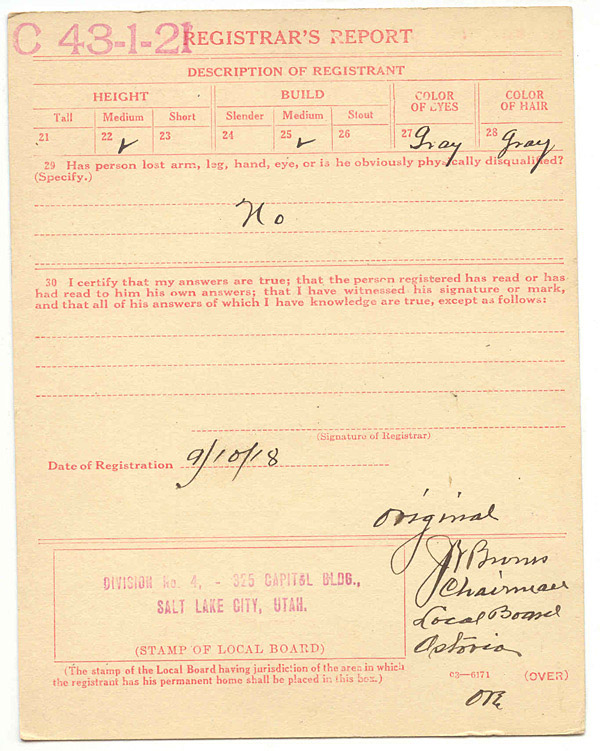 C 43-1-21 REGISTRAR'S REPORT
DESCRIPTION OF REGISTRANT
HEIGHT BUILD COLOR OF EYES COLOR OF HAIR
Tall Medium Short Slender Medium Stout
21 22 ✓ 23 24 25 ✓ 26 27 Gray 28 Gray
29 Has person lost arm, leg, hand, eye, or is he obviously physically disqualified?
(Specify.)
No
30 I certify that my answers are true; that the person registered has read or has
had read to him his own answers; that I have witnessed his signature or mark,
and that all of his answers of which I have knowledge are true, except as follows:
(Signature of Registrar)
Date of Registration 9/10/18
Original
Chairman
Local Board
Astoria
Ore
DIVISION No. 4, - 325 CAPITOL BLDG.,
SALT LAKE CITY, UTAH.
(STAMP OF LOCAL BOARD)
(The stamp of the Local Board having jurisdiction of the area in which
the registrant has his permanent home shall be placed in this box.)
03—6171 (OVER)